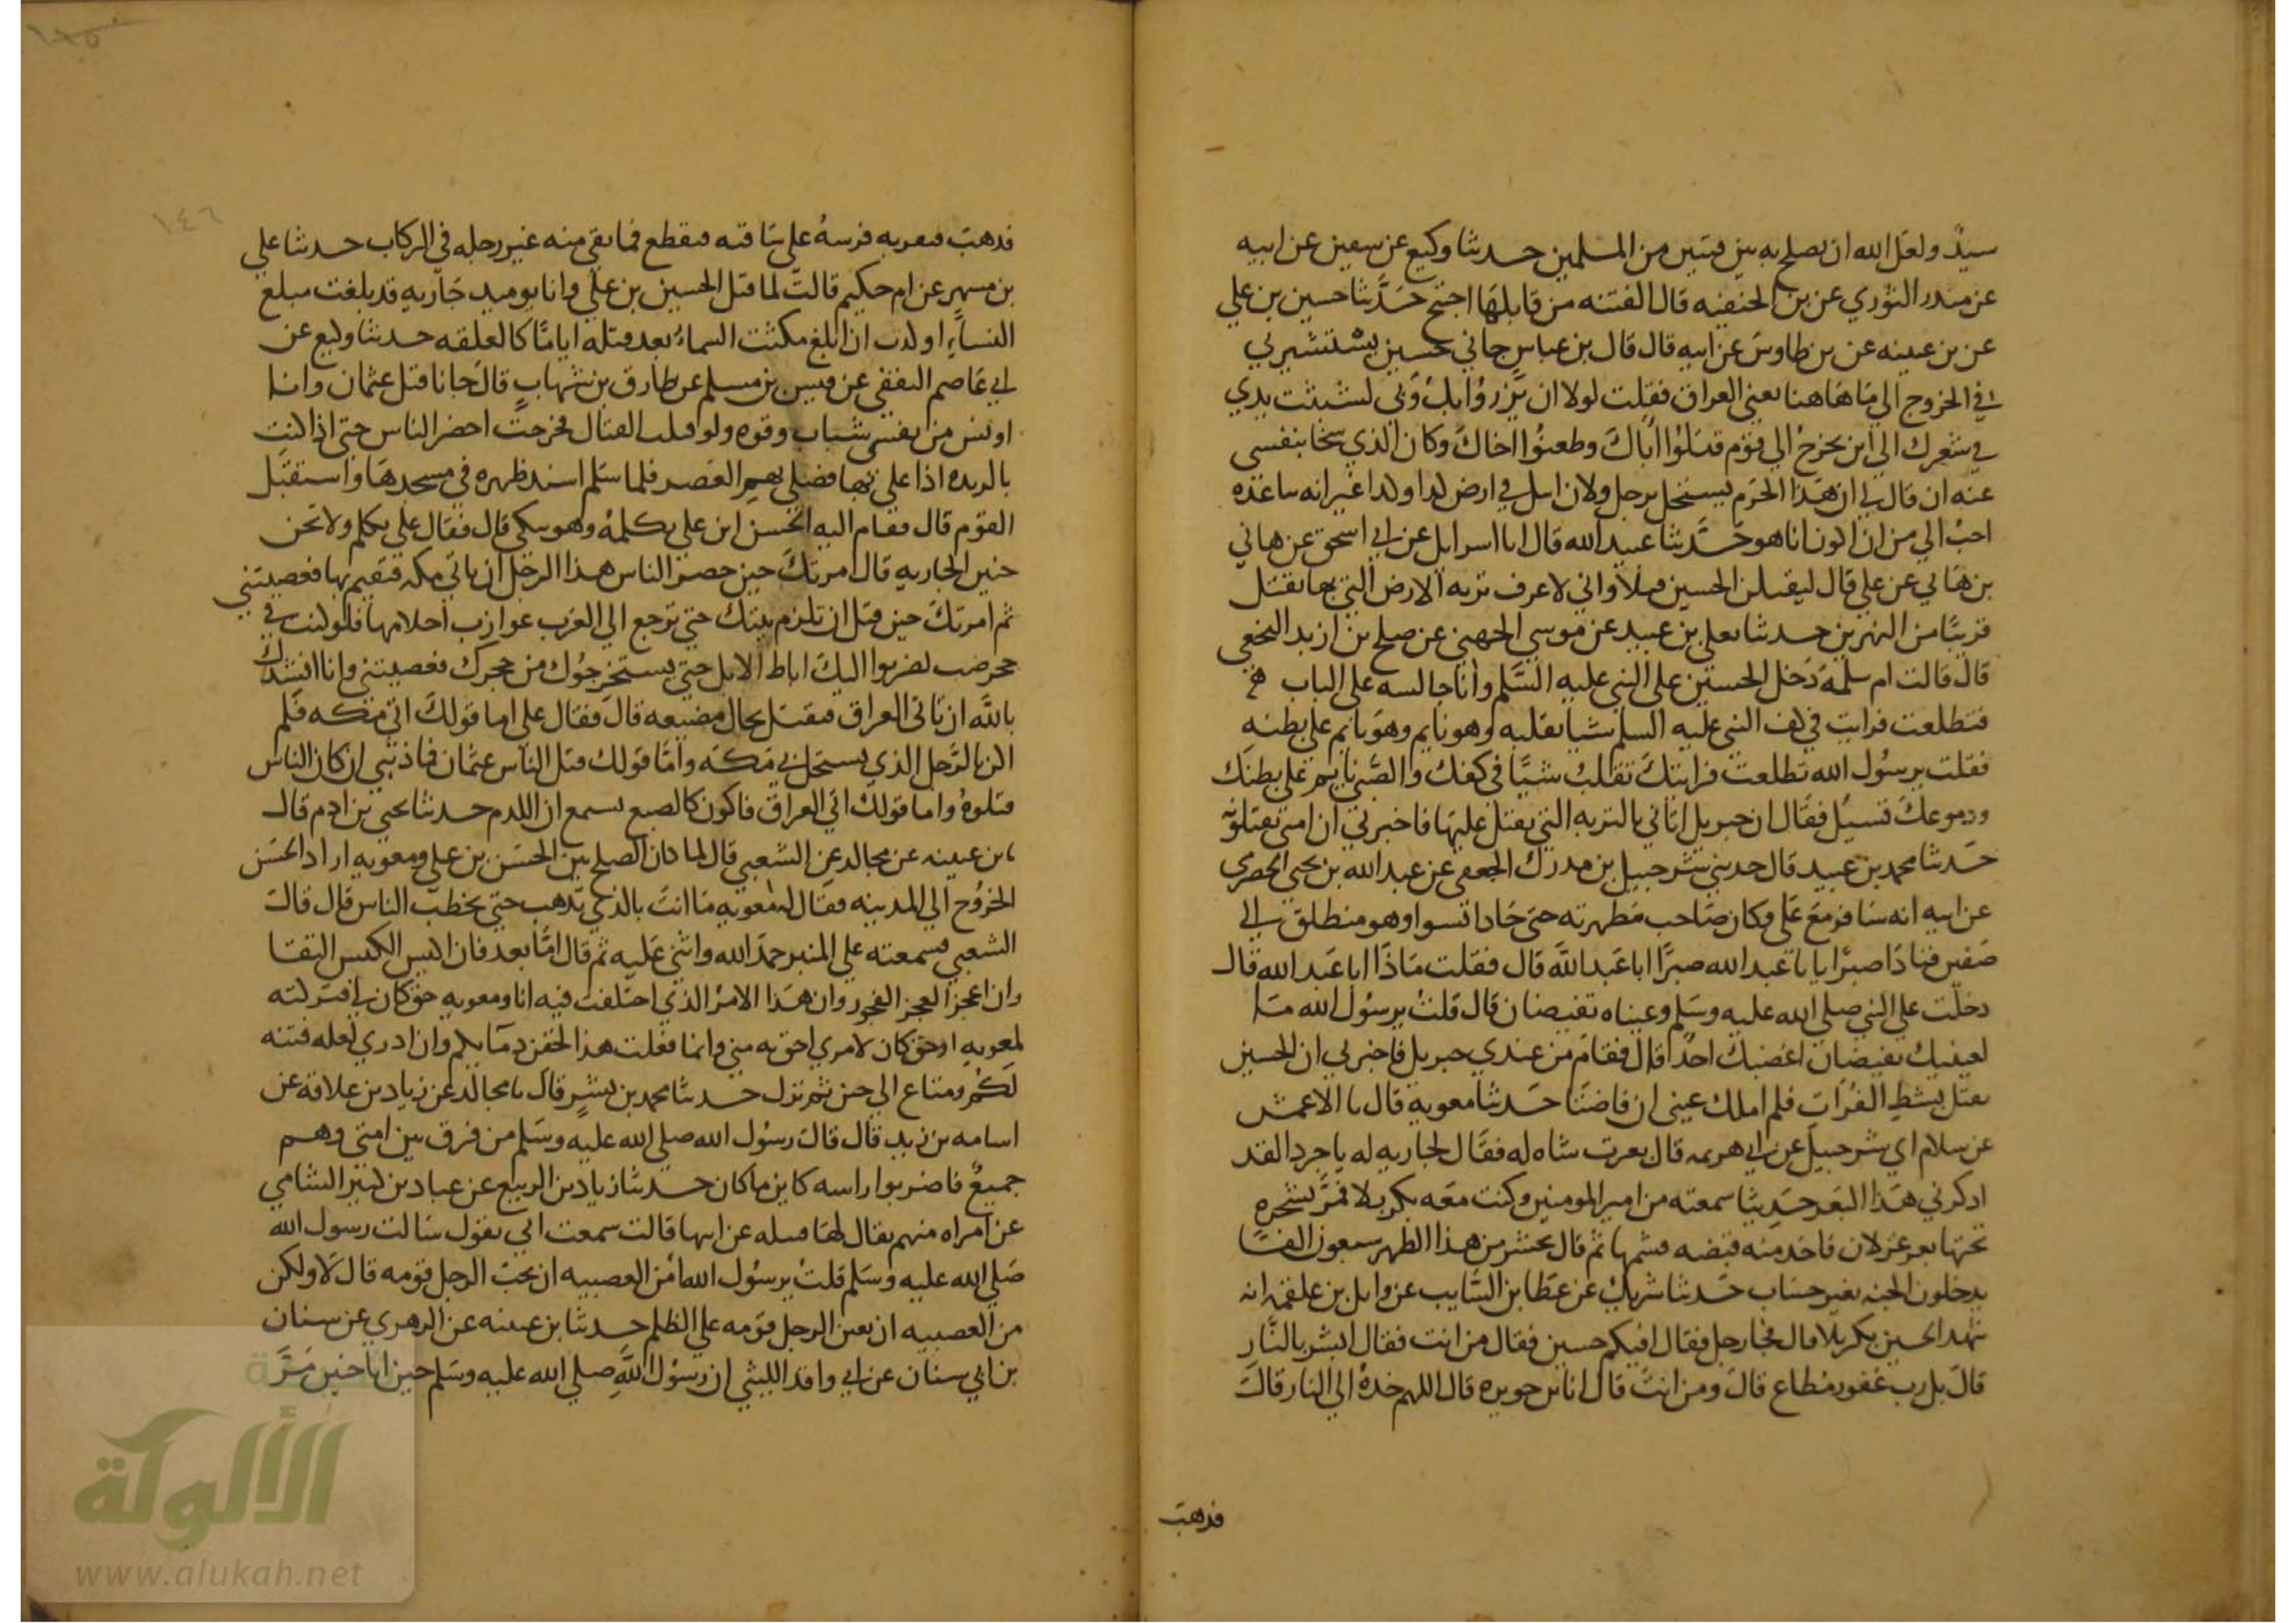 سيد ولعل الله ان يصلح به بين فيتين من المسلمين حدثنا وكيع عن سفين عن ابيه
عن منذر الثوري عن بن الحنفيه قال الفتنه من قابلها اجتح حدثنا حسين بن علي
عن بن عيينه عن بن طاوس عن ابيه قال قال بن عباس جاني حسين يستشيرني
في الخروج الي ما هاهنا يعني العراق فقلت لولا ان يزروا بك وبي لشبثت يدي
في شعرك الي اين تخرج الي قوم قتلوا اباك وطعنوا اخاك وكان الذي سخا بنفسي
عنه ان قال لي ان هذا الحرم يستحل برجل ولان اقتل في ارض كذا وكذا غير انه باعده
احب الي من ان اكون انا هو حدثنا عبيد الله قال انا اسرايل عن ابي اسحق عن هاني
بن هاني عن علي قال ليقتلن الحسين قتلا واني لاعرف تربه الارض التي بها يقتل
قريبا من النهرين حدثنا يعلي بن عبيد عن موسي الجهني عن صلح بن ازبد النخعي
قال قالت ام سلمة دخل الحسين علي النبي عليه السلم وانا جالسه علي الباب
فتطلعت فرايت في كف النبي عليه السلم شيا يقلبه وهو نايم وهو نايم علي بطنه
فقلت يرسول الله تطلعت فرايتك تقلب شيا في كفك والصبي نايم علي بطنك
ودموعك تسيل فقال ان جبريل اتاني بالتربه التي يقتل عليها فاخبرني ان امتي يقتلونه
حدثنا محمد بن عبيد قال حدثني شرحبيل بن مدرك الجعفي عن عبد الله بن يحيي الحضرمي
عن ابيه انه سافر مع علي وكان صاحب مطهرته حتي حاذا نينوا وهو منطلق الي
صفين فنادا صبرا يابا عبد الله صبرا ابا عبد الله قال فقلت ماذا ابا عبد الله قال
دخلت علي النبي صلي الله عليه وسلم وعيناه تفيضان قال قلت يرسول الله ما
لعينيك تفيضان اغضبك احد قال فقام من عندي جبريل فاخبرني ان الحسين
يقتل بشط الفرات فلم املك عيني ان فاضتا حدثنا معويه قال نا الاعمش
عن سلام ابي شرحبيل عن ابي هرثمه قال بعرت شاه له فقال لجاريه له يا جردا لقد
اذكرني هذا البعر حديثا سمعته من امير المومنين وكنت معه بكربلا فمر بشجره
تحتها بعر غزلان فاخذ منه قبضه فشمها ثم قال يحشر من هذا الظهر سبعون الفا
يدخلون الجنه بغير حساب حدثنا شريك عن عطا بن السايب عن وايل بن علقمه انه
شهد الحسين بكربلا قال فجا رجل فقال افيكم حسين فقال من انت فقال ابشر بالنار
قال بل رب غفور مطاع قال ومن انت قال انا بن حويزه قال اللهم خذه الي النار قال
فذهب
فذهب فنفر به فرسه علي ساقته فتقطع فما بقي منه غير رجله في الركاب حدثنا علي
بن مسهر عن ام حكيم قالت لما قتل الحسين بن علي وانا يوميد جاريه قد بلغت مبلغ
النساء او كدت ان ابلغ مكثت السماء بعد قتله اياما كالعلقه حدثنا وكيع عن
ابي عاصم الثقفي عن قيس بن مسلم عن طارق بن شهاب قال جانا قتل عثمان وانا
اونس من نفسي شباب وقوه ولو قتلت القتال فخرجت احضر الناس حتي اذا كنت
بالربذه اذا علي بها فصلي بهم العصر فلما سلم اسند ظهره في مسجدها واستقبل
القوم قال فقام اليه الحسن ابن علي يكلمه وهو يبكي قال فقال علي تكلم ولا تحن
حنين الجاريه قال امرتك حين حصر الناس هذا الرجل ان تاتي مكه فتقيم بها فعصيتني
ثم امرتك حين قتل ان تلزم بيتك حتي ترجع الي العرب عوازب احلامها فلو كنت في
جحر ضب لضربوا اليك اباط الابل حتي يستخرجوك من جحرك فعصيتني وانا انشدك
بالله ان تاتي العراق فتقتل بحال مضيعه قال فقال علي اما قولك اتي مكه فلم
اكن بالرجل الذي يستحل بي مكه واما قولك قتل الناس عثمان فما ذنبي ان كان الناس
قتلوه واما قولك اتي العراق فاكون كالضبع تسمع ان اللدم حدثنا يحيي بن ادم قال
نا بن عيينه عن مجالد عن الشعبي قال لما كان الصلح بين الحسن بن علي ومعويه اراد الحسن
الخروج الي المدينه فقال له معويه ما انت بالذي تذهب حتي تخطب الناس قال قال
الشعبي فسمعته علي المنبر حمد الله واثني عليه ثم قال اما بعد فان اكيس الكيس التقا
وان اعجز العجز الفجور وان هذا الامر الذي اختلفت فيه انا ومعويه حق كان لي فتركته
لمعويه او حق كان لامري احق به مني وانما فعلت هذا لحقن دمايكم وان ادري لعله فتنه
لكم ومتاع الي حين ثم نزل حدثنا محمد بن بشر قال نا مجالد عن زياد بن علاقة عن
اسامه بن زيد قال قال رسول الله صلي الله عليه وسلم من فرق بين امتي وهم
جميع فاضربوا راسه كاين ما كان حدثنا زياد بن الربيع عن عباد بن كثير الشامي
عن امراه منهم يقال لها فسله عن ابيها قالت سمعت ابي يقول سالت رسول الله
صلي الله عليه وسلم قلت يرسول الله امن العصبيه ان يحب الرجل قومه قال لا ولكن
من العصبيه ان يعين الرجل قومه علي الظلم حدثنا بن عيينه عن الزهري عن سنان
بن ابي سنان عن ابي واقد الليثي ان رسول الله صلي الله عليه وسلم حين اتا حنين مر
١٤٦
الألوكة
www.alukah.net